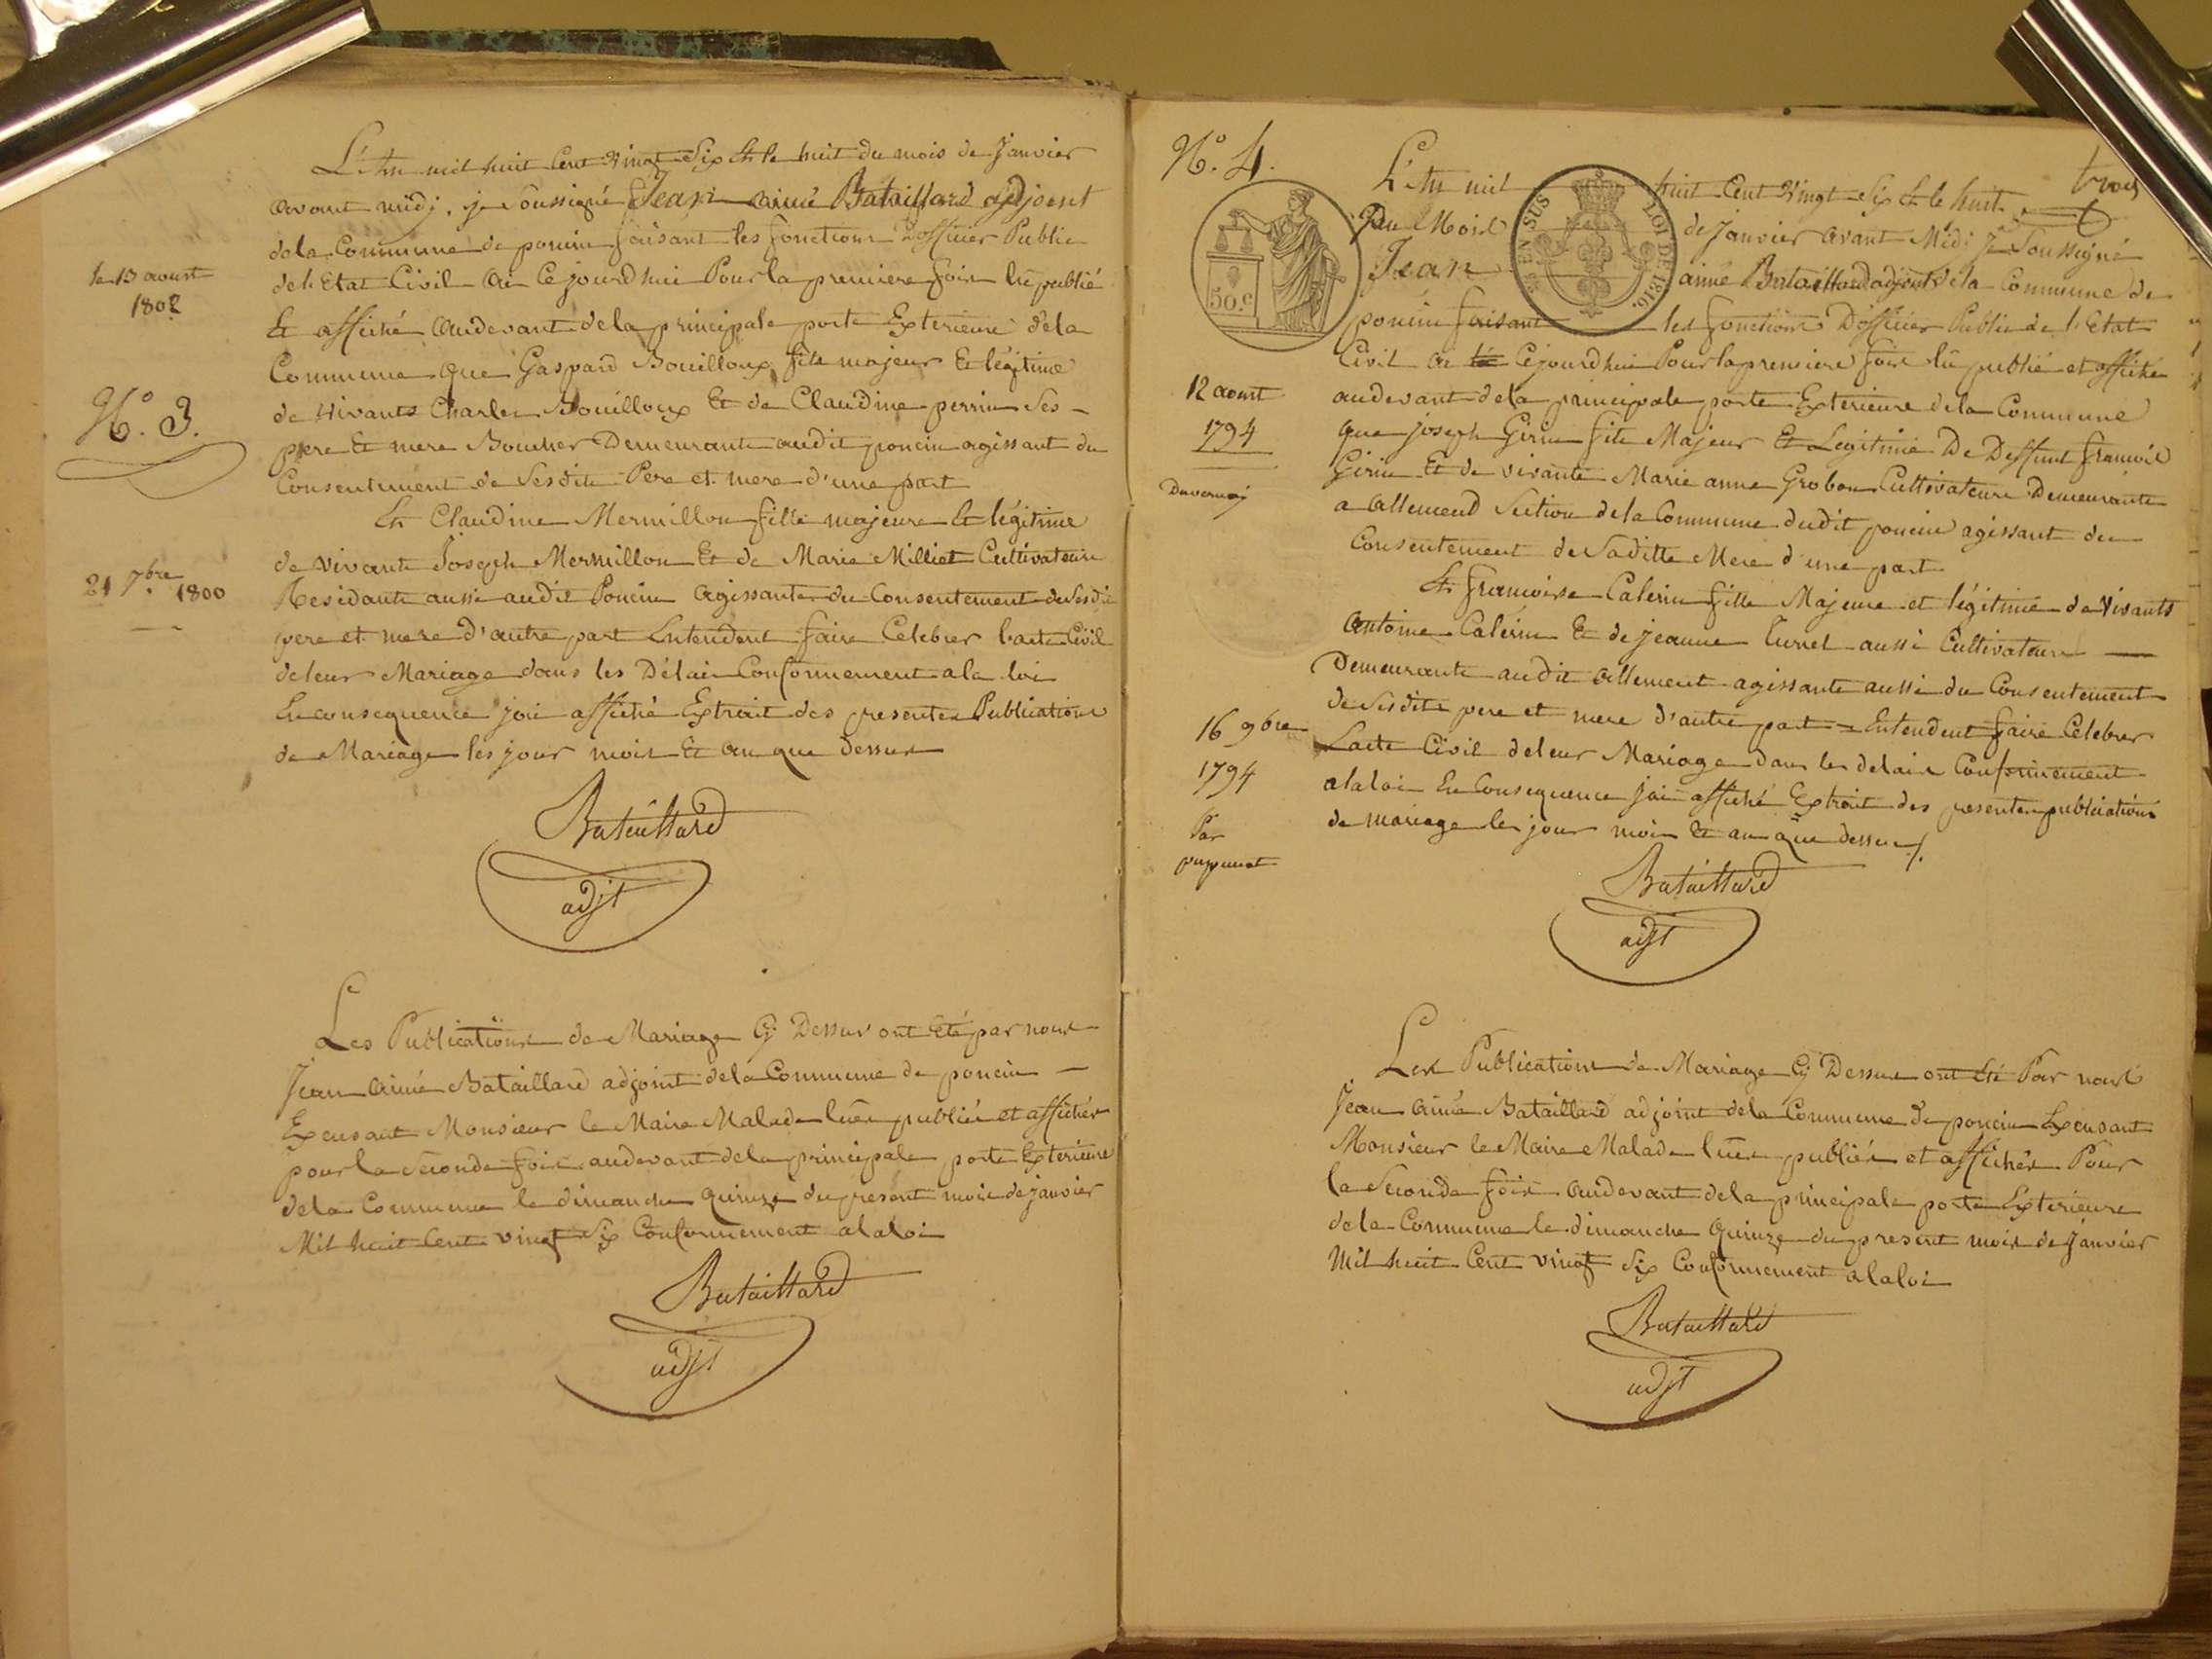 le 13 aoust
1802
N.° 3.
21 7.bre 1800
L'An mil huit Cent vingt Six Et le huit du mois de Janvier
avant midi, je Soussigné Jean aimé Bataillard adjoint
dela Commune de poncin faisant les fonctions d'officier Public
del'Etat Civil ai Cejourd'hui Pour la premiere fois lu publié
Et affiché audevant dela principale porte Exterieure dela
Commune que Gaspard Bouilloux fils majeur Et légitime
de vivants Charles Bouilloux Et de Claudine perrin Ses
pere Et mere Boucher Demeurants audit poncin agissant du
Consentement de Sesdits Pere et mere d'une part
Et Claudine Mermillon fille majeure Et légitime
de vivants Joseph Mermillon Et de Marie Milliet Cultivateurs
Residants aussi audit Poncin agissante du Consentement de Sesdits
pere et mere d'autre part Entendent faire Celebrer l'acte Civil
deleur Mariage dans les Délais Conformement ala loi
En consequence j'ai affiché Extrait des presentes Publications
de Mariage les jour mois Et an que dessus
Bataillard
adjt
Les Publications de Mariage Cy Dessus ont Eté par nous
Jean aimé Bataillard adjoint dela Commune de poncin
Excusant Monsieur le Maire Malade lues publiés et affichés
pour la Seconde fois audevant dela principale porte Exterieure
dela Commune le dimanche quinze du present mois de janvier
Mil huit Cent vingt Six Conformement alaloi
Bataillard
adjt
N.° 4.
trois
50.c
EN SUS
LOI DE 1816.
12 aoust
1794
16 9bre
1794
Par
L'An mil huit Cent vingt Six Et le huit
Du Mois de Janvier avant Midi Je Soussigné
Jean aimé Bataillard adjoint dela Commune de
poncin faisant les fonctions D'officier Public de l'Etat
Civil ai Cejourd'hui Pour la premiere fois lu publié et affiché
audevant dela principale porte Exterieure dela Commune
que joseph Girin fils Majeur Et Legitime De Deffunt françois
Girin Et de vivante Marie anne Grobon Cultivateurs Demeurants
a allemend Section dela Commune dudit poncin agissant du
Consentement de Saditte Mere d'une part
Et françoise Calérin fille Majeure et légitime de vivants
antoine Calérin Et de jeanne Turrel aussi Cultivateurs
Demeurants audit allement agissante aussi du Consentement
de Sesdits pere et mere d'autre part = Entendent faire Celebrer
Lacte Civil deleur Mariage dans les delais Conformement
alaloi En Consequence j'ai affiché Extrait des presentes publications
de mariage les jour mois Et an que dessus /.
Bataillard
adjt
Les Publications de Mariage Cy Dessus ont Eté Par nous
Jean aimé Bataillard adjoint dela Commune de poncin Excusant
Monsieur le Maire Malade lues publiés et affichés Pour
la Seconde fois audevant dela principale porte Exterieure
dela Commune le dimanche quinze du present mois de janvier
Mil huit Cent vingt Six Conformement alaloi
Bataillard
adjt